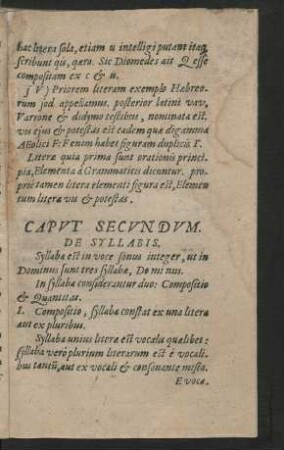 hac litera sola, etiam u intelligi putant itaq;
scribunt qis, qæra. Sic Diomedes ait Q esse
compositam ex c & u.
J V) Priorem literam exemplo Hæbreo-
rum jod appellamus. posterior latini vav,
Varrone & didymo testibus, nominata est.
vis ejus & potestas est eadem quæ digamma
AEolici F: Fenom habet figuram duplicis Γ.
Literæ quia prima sunt orationis princi-
pia, Elementa à Grammaticis dicuntur. pro-
priè tamen litera elementi figura est, Elemen
tum literæ vis & potestas.
CAPVT SECVNDVM.
DE SYLLABIS.
Syllaba est in voce sonus integer, ut in
Dominus sunt tres syllabæ, Do mi nus.
In syllaba considerantur duo: Compositio
& Quantitas.
I. Compositio, syllaba constat ex una litera
aut ex pluribus.
Syllaba unius literæ est vocalis quælibet:
syllaba verò plurium literarum est è vocali-
bus tantũ, aut ex vocali & consonante mista.
E vocæ.